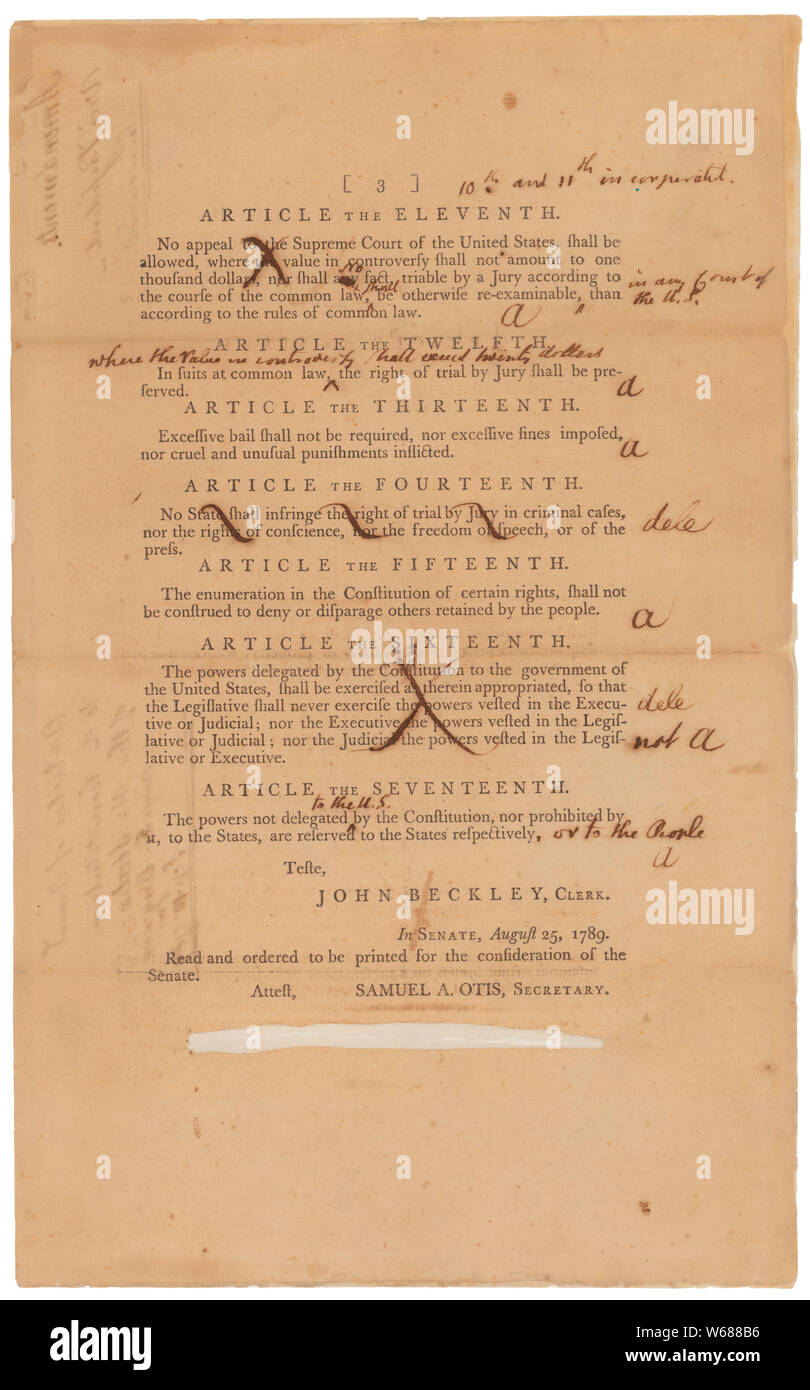 [ 3 ] 10th and 11th incorporated.
ARTICLE THE ELEVENTH.
No appeal to the Supreme Court of the United States, ſhall be
allowed, where the value in controverſy ſhall not amount to one
No
thouſand dollars, nor ſhall any fact, triable by a Jury according to in any Court of
shall
the courſe of the common law, be otherwiſe re-examinable, than the U.S.
according to the rules of common law. a
ARTICLE THE TWELFTH.
where the value in controversy shall exceed twenty dollars
In ſuits at common law, the right of trial by Jury ſhall be pre-
ſerved. a
ARTICLE THE THIRTEENTH.
Exceſſive bail ſhall not be required, nor exceſſive fines impoſed,
nor cruel and unuſual puniſhments inflicted. a
ARTICLE THE FOURTEENTH.
No State ſhall infringe the right of trial by Jury in criminal caſes,
nor the rights of conſcience, nor the freedom of ſpeech, or of the dele
preſs.
ARTICLE THE FIFTEENTH.
The enumeration in the Conſtitution of certain rights, ſhall not
be conſtrued to deny or diſparage others retained by the people. a
ARTICLE THE SIXTEENTH.
The powers delegated by the Conſtitution to the government of
the United States, ſhall be exerciſed as therein appropriated, ſo that
the Legiſlative ſhall never exerciſe the powers veſted in the Execu- dele
tive or Judicial; nor the Executive the powers veſted in the Legiſ-
lative or Judicial; nor the Judicial the powers veſted in the Legiſ- not a
lative or Executive.
ARTICLE THE SEVENTEENTH.
to the U.S.
The powers not delegated by the Conſtitution, nor prohibited by
it, to the States, are reſerved to the States reſpectively, or to the People
a
Teſte,
JOHN BECKLEY, CLERK.
In SENATE, Auguſt 25, 1789.
Read and ordered to be printed for the conſideration of the
Senate.
Atteſt, SAMUEL A. OTIS, SECRETARY.
alamy
alamy
alamy
alamy
alamy
a
a
a
a
a
a
a
a
a
alamy
Image ID: W688B6
www.alamy.com